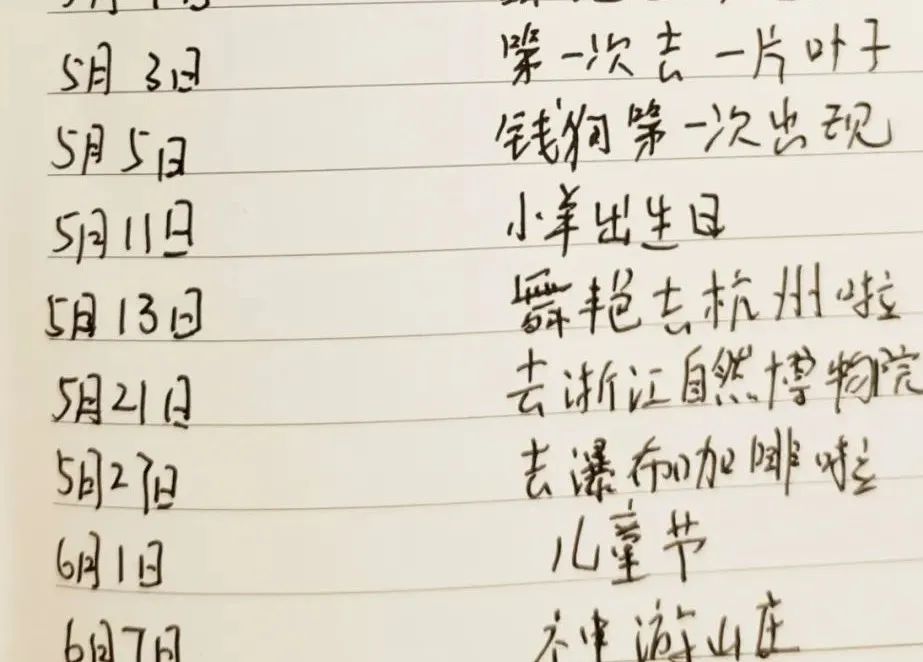 5月3日 第一次去一片叶子
5月5日 钱狗第一次出现
5月11日 小羊出生日
5月13日 舞艳去杭州啦
5月21日 去浙江自然博物院
5月27日 去瀑布咖啡啦
6月1日 儿童节
6月7日 神游山庄